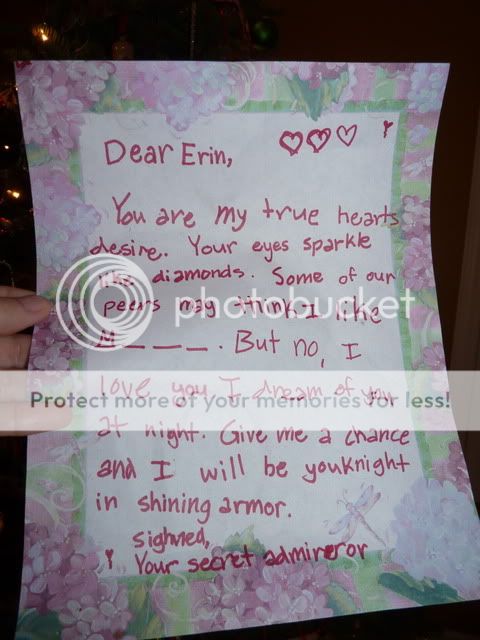 Dear Erin,
You are my true hearts
desire. Your eyes sparkle
like diamonds. Some of our
peers may think I like
M _ _ _ _. But no, I
love you I dream of you
at night. Give me a chance
and I will be youknight
in shining armor.
sighned,
Your secret admireror
photobucket
Protect more of your memories for less!